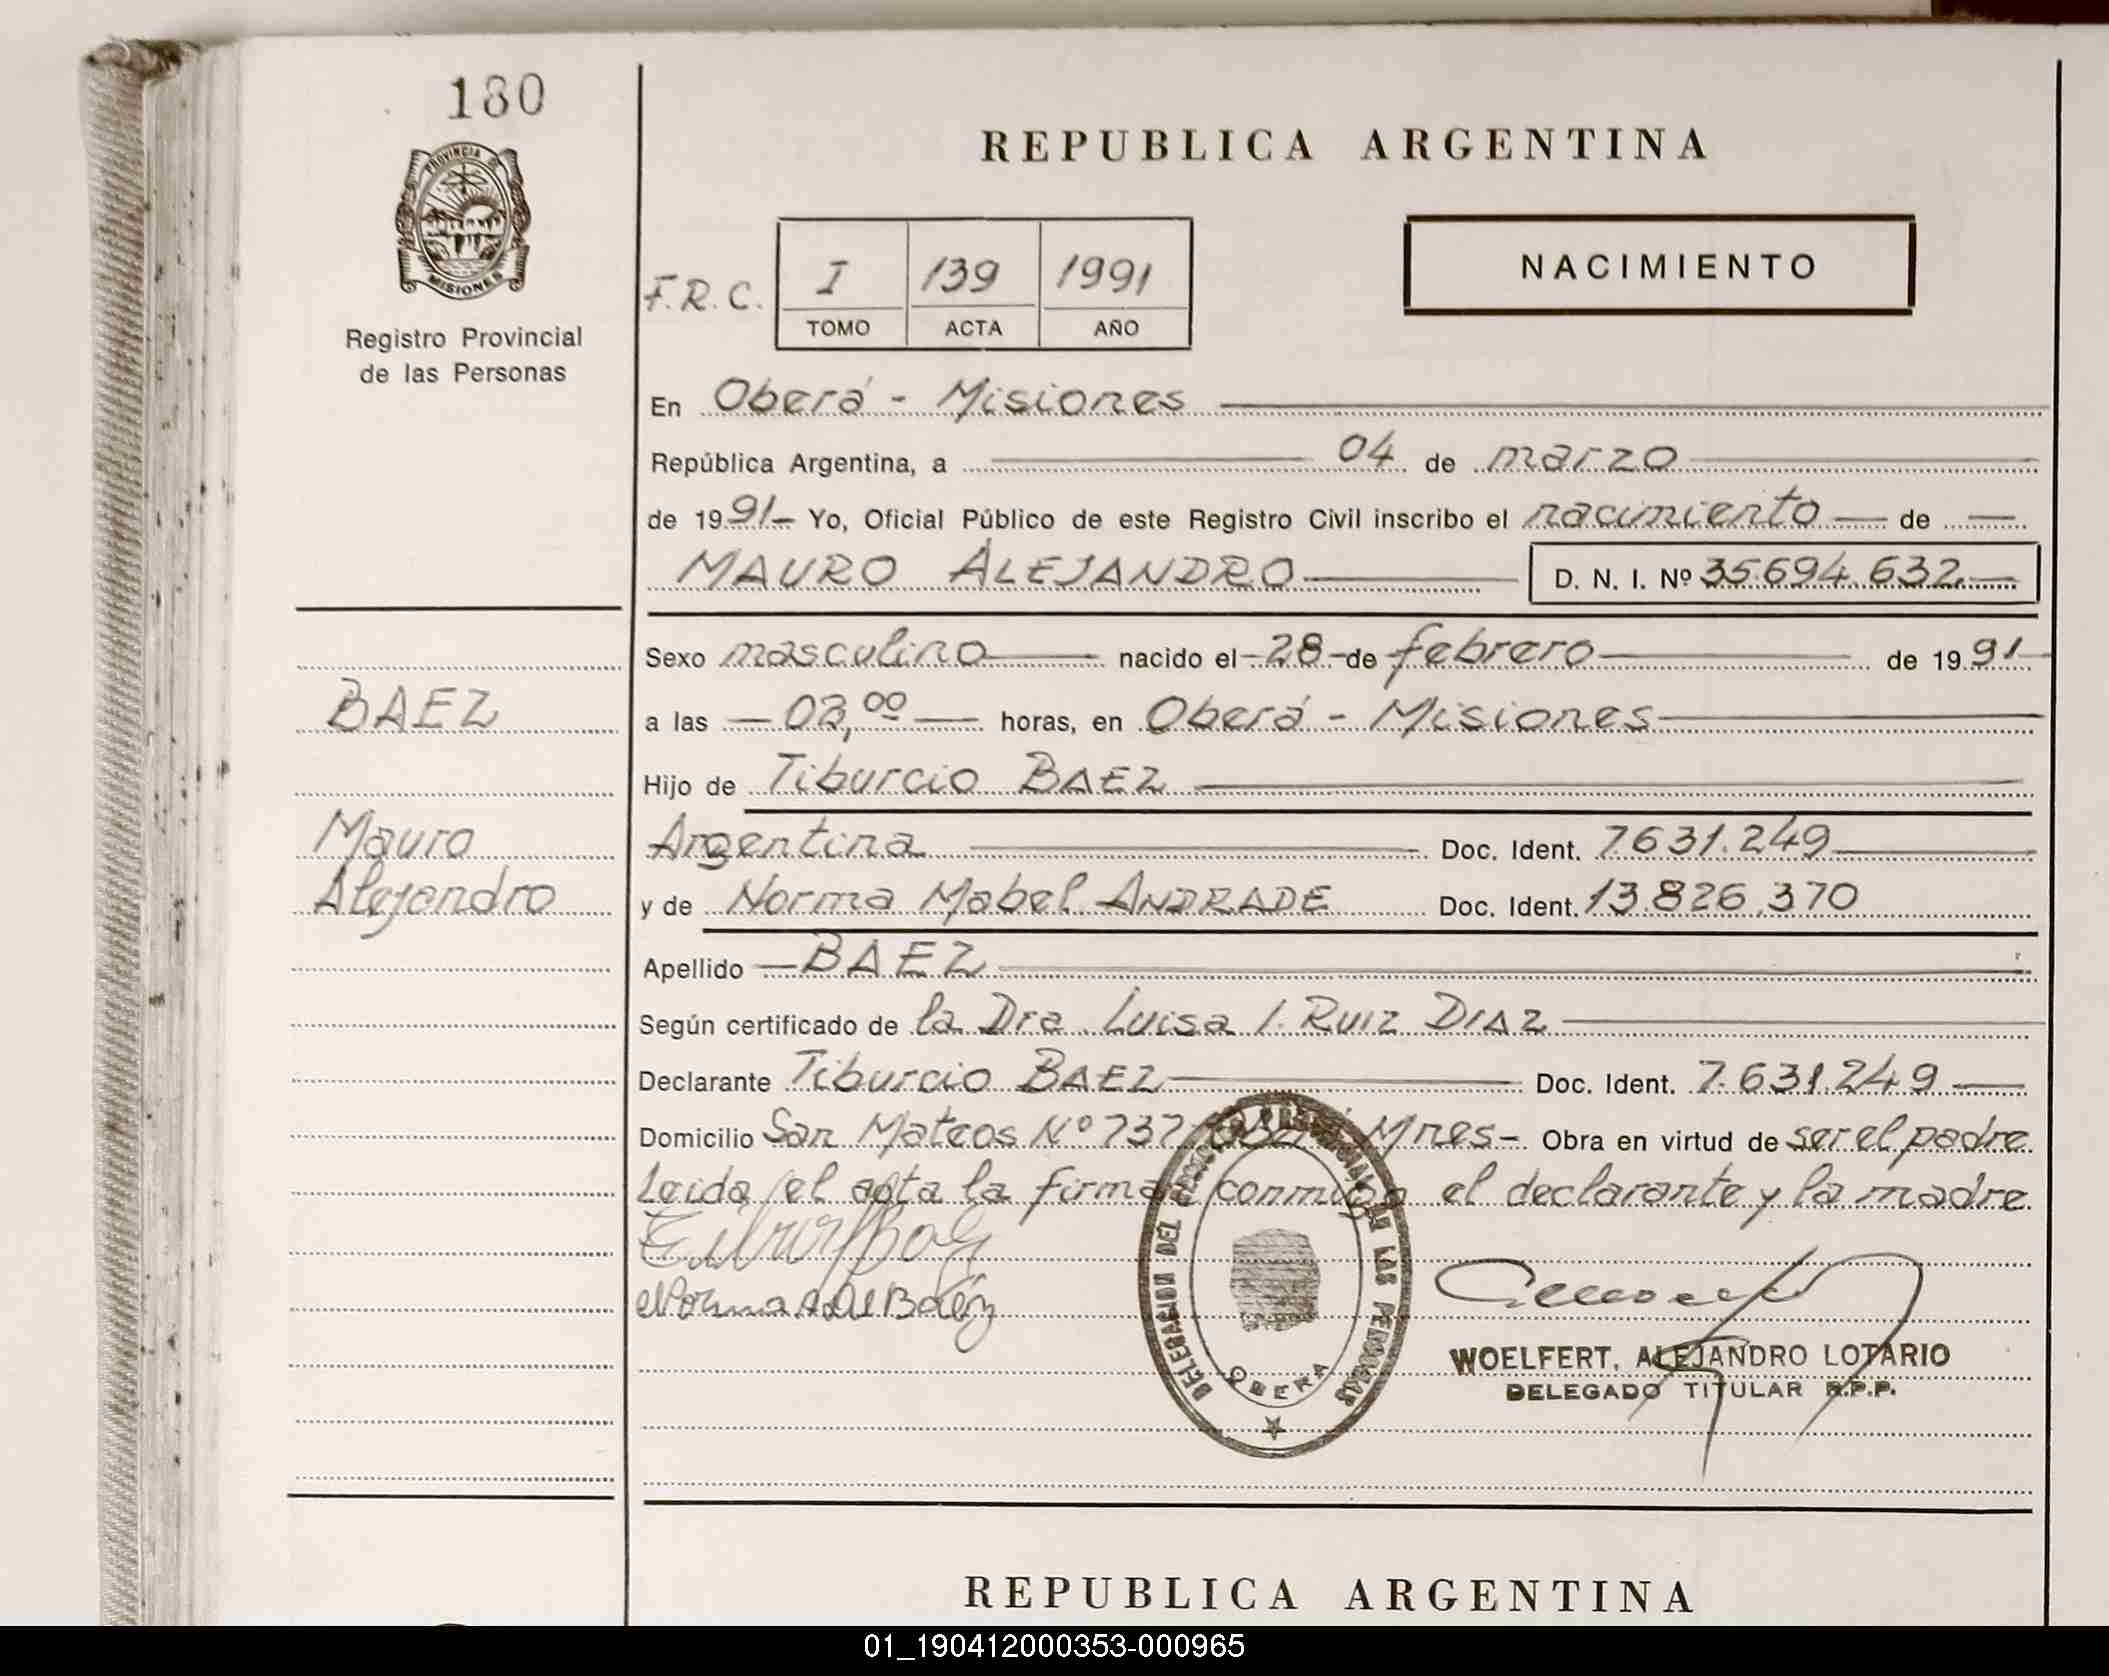 180
PROVINCIA DE
MISIONES
Registro Provincial
de las Personas
REPUBLICA ARGENTINA
F.R.C.
I 139 1991
TOMO ACTA AÑO
NACIMIENTO
En Oberá - Misiones
República Argentina, a 04 de marzo
de 1991- Yo, Oficial Público de este Registro Civil inscribo el nacimiento — de —
MAURO ALEJANDRO — D. N. I. Nº 35.694.632.—
Sexo masculino — nacido el - 28 - de febrero — de 1991
BAEZ
a las — 03,00 — horas, en Oberá - Misiones
Hijo de Tiburcio BAEZ
Mauro
Argentina — Doc. Ident. 7631.249
Alejandro
y de Norma Mabel ANDRADE Doc. Ident. 13.826.370
Apellido — BAEZ
Según certificado de la Dra. Luisa I. RUIZ DIAZ
Declarante Tiburcio BAEZ — Doc. Ident. 7.631.249 —
Domicilio San Mateos Nº 737 Oberá Mnes- Obra en virtud de ser el padre
Leida el acta la firman conmigo el declarante y la madre
Norma A. de Baéz
DELEGACION DEL REGISTRO PROVINCIAL DE LAS PERSONAS
OBERA
WOELFERT, ALEJANDRO LOTARIO
DELEGADO TITULAR R.P.P.
REPUBLICA ARGENTINA
01_190412000353-000965